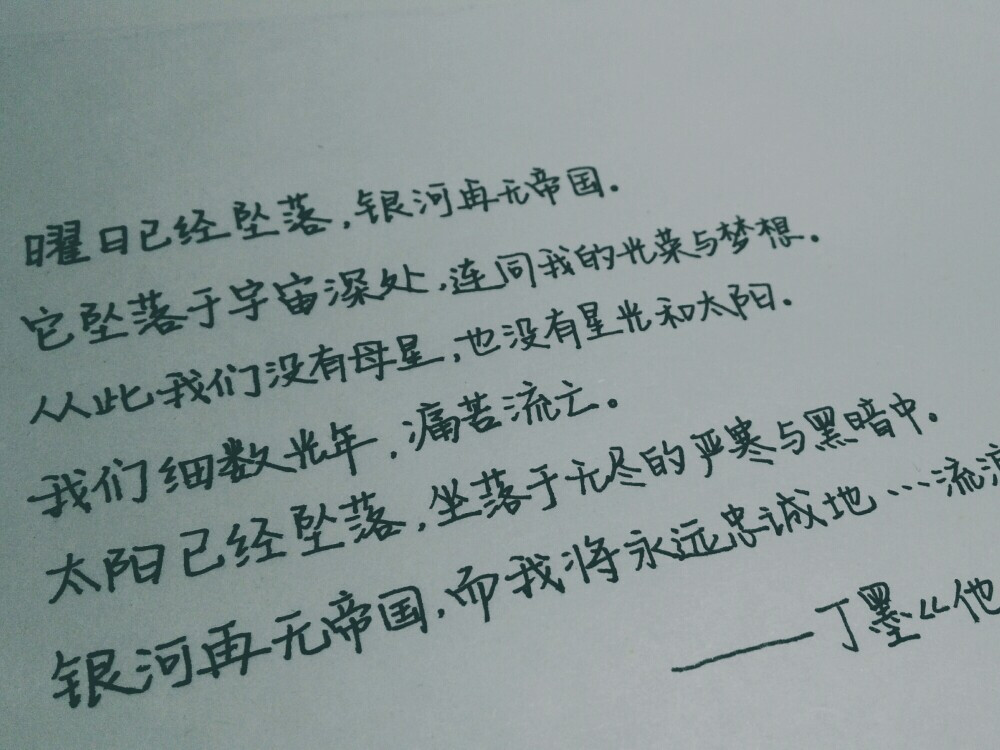 曜日已经坠落,银河再无帝国.
它坠落于宇宙深处,连同我的光荣与梦想.
从此我们没有母星,也没有星光和太阳.
我们细数光年,痛苦流亡。
太阳已经坠落,坐落于无尽的严寒与黑暗中.
银河再无帝国,而我将永远忠诚地…流浪
——丁墨《他